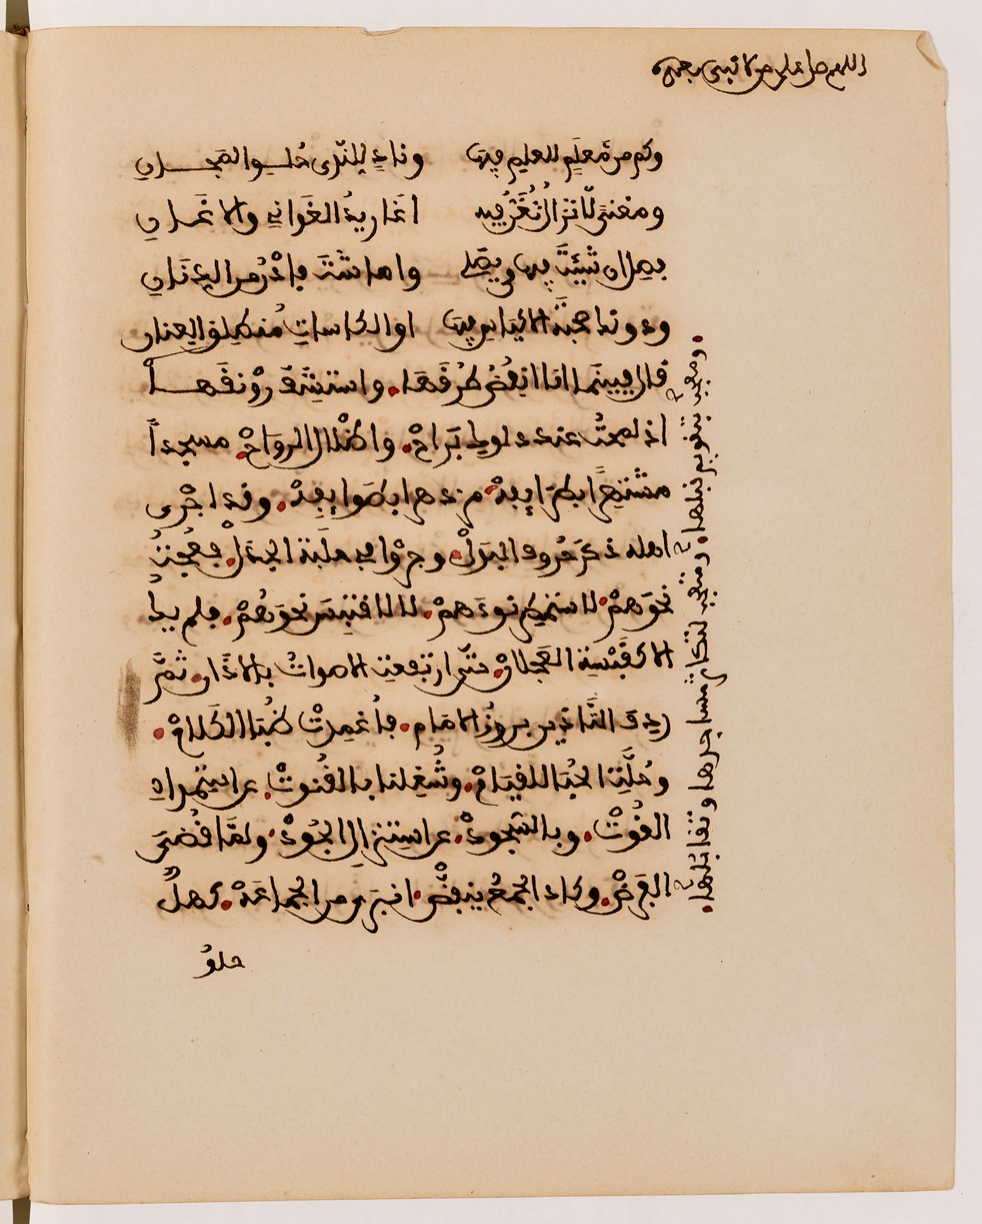 اللهم صل على من لا نبي بعده
وكم من مُعلِمٍ للعلم فيها ونادٍ للندى حُلو المجاني
ومغنىً لا تزال تُغَنُّ فيه أغاريدُ الغَواني والاغاني
فصل ان شِئْتَ فيها من يصلي واما شئتَ فادْنُ من الدنانِ
ودونك صحبةَ الاكياس فيها او الكاساتِ مُنطلق العنان
قال فبينما انا انفُضُ طُرقَها. واستشِفُّ رَوْنقَها
اذ لمحتُ عند دلوك بَراحْ. واظلال الرواحْ. مسجداً
مشتهراً بطرايِفِهْ. مزدهرا بطوايِفِهْ. وقد اجْرى
اهله ذكرَ حُروف البَدلْ. وجروْا في حلبة الجدلْ. فعُجتُ
نحوَهمْ. لاستمطِرَ نوءَهمْ. لا لاقتبسَ نحوَهُمْ. فلم يك
الا كقَبْسة العَجلانْ. حتى ارتفعت الاصواتُ بالاذانِ. ثمَّ
ردِفَ التَّاذينَ بروزُ الامام. فأُغمِدتْ ظُبَا الكلامْ.
وحُلَّتِ الحُبَا للقيامْ. وشُغِلنا بالقُنوتْ. عن استمدادِ
القُوتْ. وبالسُّجودْ. عن استنزال الجُودْ. ولمَّا قُضيَ
الفرضْ. وكاد الجَمعُ ينفضّْ. انبرى من الجماعَةْ. كهلٌ
حلوُ
ويعجب بتقويم قبلتها. ويتعجب لتكاثر مساجدها وتقابلها.